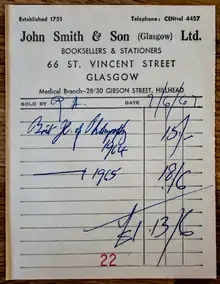 Established 1751 Telephone: CENtral 4457
John Smith & Son (Glasgow) Ltd.
BOOKSELLERS & STATIONERS
66 ST. VINCENT STREET
GLASGOW
Medical Branch-28/30 GIBSON STREET, HILLHEAD
SOLD BY P.A. DATE 9/6/67
Brit Jl. of Philosophy 15/-
1964
1965 18/6
£1.13/6
22